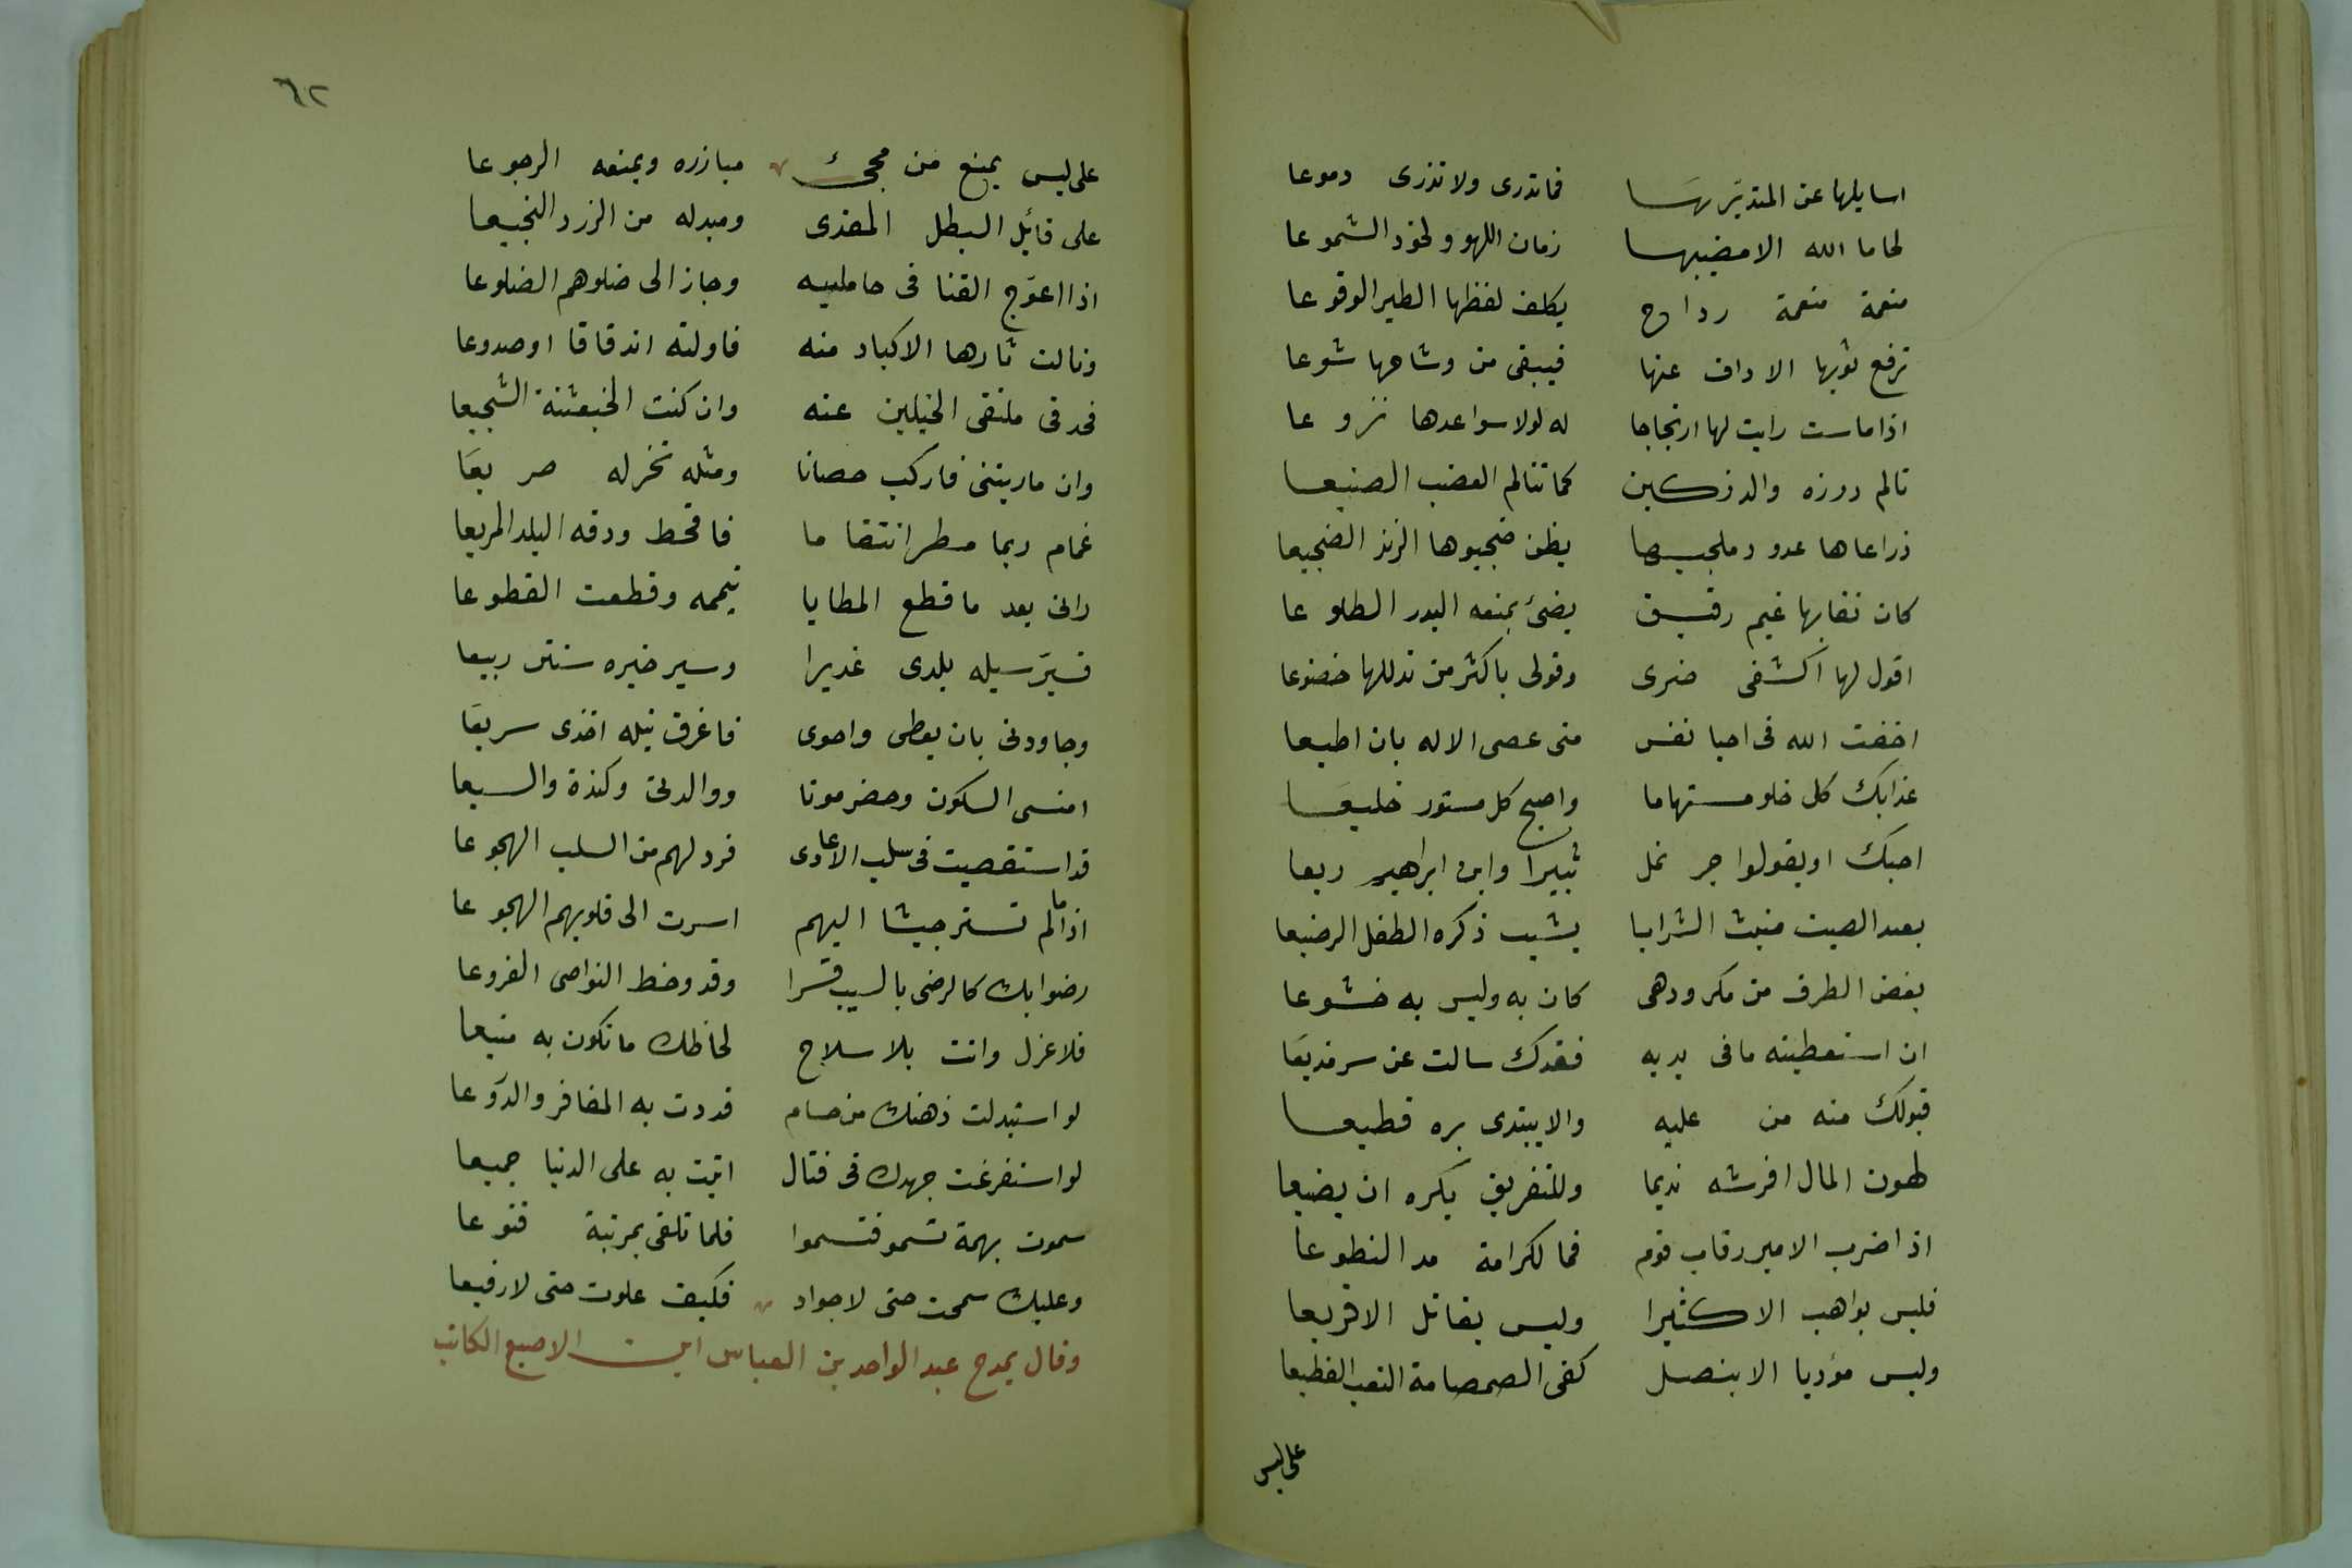 اسايلها عن المتديَّريهَا فماتدرى ولا تذرى دموعا
لحاها الله الا مضييها زمان اللهو ولخود الشموعا
منعمة منعمة رداح يكلف لفظها الطير الوقوعا
ترفع ثوبها الاداف عنها فيبقى من وشاحها شوعا
اذا ماست رايت لها ارتجاجا له لولا سواعدها نزوعا
تالم درزه والدرزكين كما تتالم العضب الصنيعا
ذراعاها عدو دملجيها يظن ضجيوها الزند الضجيعا
كان نقابها غيم رقيق يضئ بمنعه البدر الطلوعا
اقول لها اكشفى ضرى وقولى باكثر من تدللها خضوعا
اخفت الله فى احيا نفس متى عصى الاله بان اطيعا
غدابك كل خلو مستهاما واصبح كل مستور خليعَا
احبك او يقولوا جر نمل ثبيرا وابن ابراهيم ريعا
بعيد الصيت منبث الشرايا يشيب ذكره الطفل الرضيعا
بغض الطرف من مكر ودهى كان به وليس به خشوعا
ان استعطيته مافى يديه فقدك سالت عن سر مذيعَا
قبولك منه من عليه والا يبتدى بره قطيعا
لهون المال افرشه نديما وللتفريق يكره ان يضيعا
اذا ضرب الامير رقاب قوم فما لكرامة مد النطوعا
فليس بواهب الا كثيرا وليس بقاتل الا قريعا
وليس مؤديا الا بنصل كفى الصمصامة التعب القطيعا
على ليس
٦٢
على ليس يمنع من مجئ مبازره ويمنعه الرجوعا
على قائل البطل المفدى ومبدله من الزرد النجيعا
اذا اعوَّج القنا فى حامليه وجاز الى ضلوهم الضلوعا
ونالت ثارها الاكباد منه فاولته اندقاقا او صدوعا
فحد فى ملتقى الخيلين عنه وان كنت الخبعثنة الشجيعا
وان ماريتنى فاركب حصانا ومثله تخرله صريعَا
غمام ربما مطر انتقاما فاقحط ودقه البلد المريعا
رانى بعد ما قطع المطايا تيممه وقطعت القطوعا
فسيَّر سيله بلدى غديرا وسير خيره سنتى ربيعا
وجاودنى بان يعطى واحوى فاغرق نيله اخذى سريعَا
امنسى السكون وحضرموتا ووالدتى وكندة والسبعا
قد استقصيت فى سلب الاعادى فرد لهم من السلب الهجوعا
اذا ما لم تستر جيشا اليهم اسرت الى قلوبهم الهجوعا
رضوا بك كالرضى بالسيب قسرا وقد وخط النواصى الفروعا
فلا عزل وانت بلا سلاح لحاظك ما تكون به منيعا
لو استبدلت ذهنك من حسام قددت به المغافر والدَّروعا
لو استفرغت جهدك فى قتال اتيت به على الدنيا جميعا
سموت بهمة تسمو فتسموا فلما تلقى بمرتبة قنوعا
وعليك سمحت حتى لا جواد فكيف علوت حتى لا رفيعا
وقال يمدح عبد الواحد بن العباس ابن الاصبع الكاتب